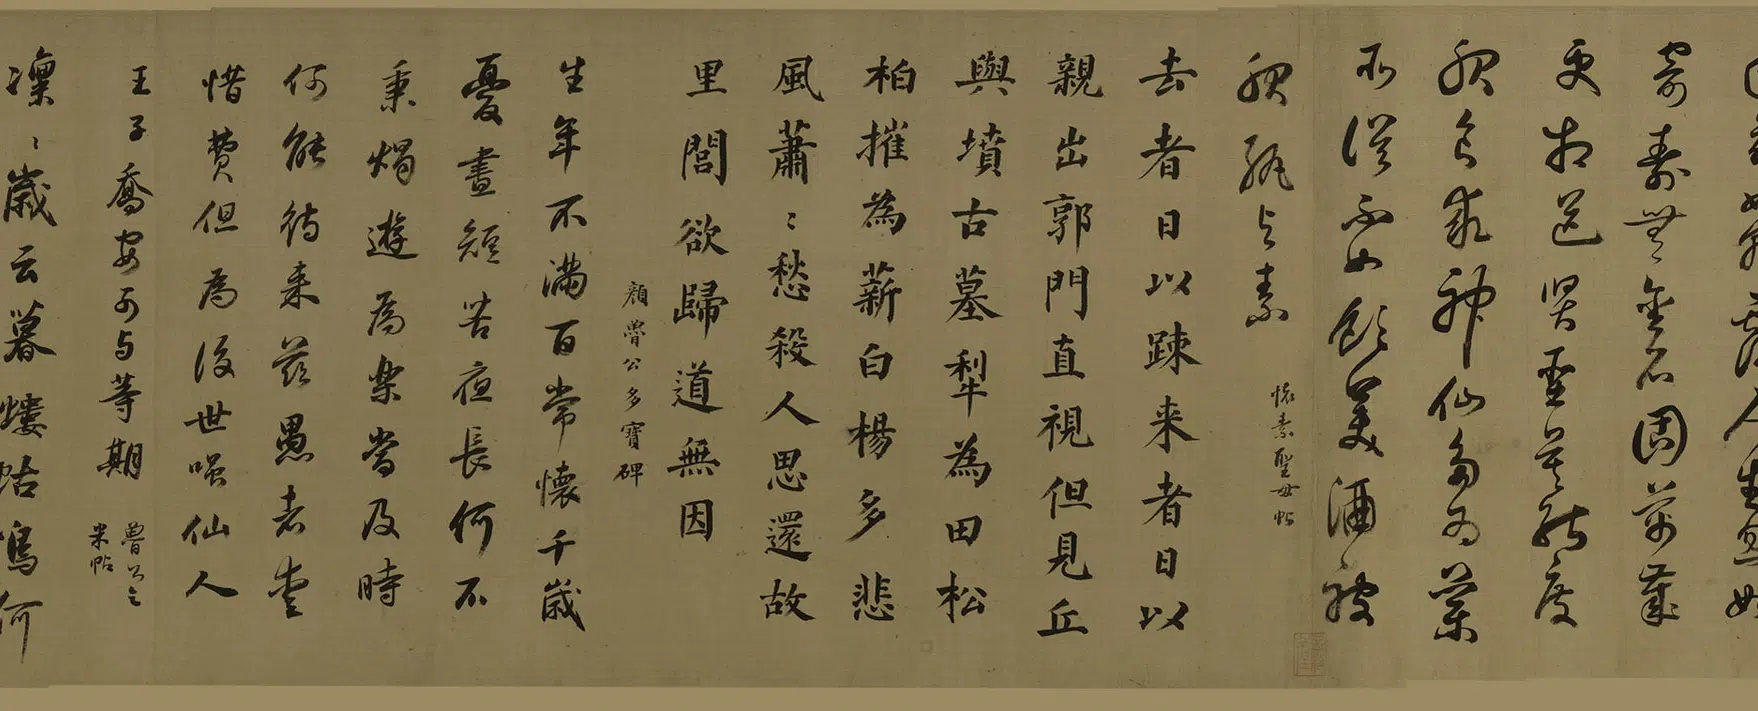 如朝露人生忽如
寄壽無金石固萬歲
更相送賢聖莫能度
服食求神仙多為藥
所誤不如飲美酒被
服紈与素
懷素聖母帖
去者日以疎来者日以
親出郭門直視但見丘
與墳古墓犁為田松
柏摧為薪白楊多悲
風蕭〻愁殺人思還故
里閭欲歸道無因
顏魯公多寶碑
生年不滿百常懷千歲
憂晝短苦夜長何不
秉燭遊為樂當及時
何能待来茲愚者愛
惜費但為後世嗤仙人
王子喬安可与等期
魯公之
米帖
凜〻歲云暮螻蛄鳴何